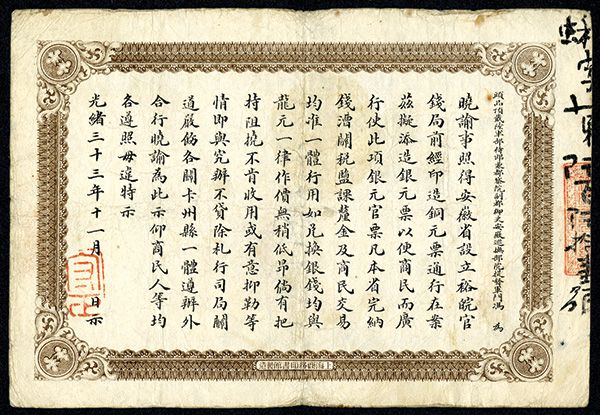 頭品頂戴陸軍部侍郎兼都察院副都御史安徽巡撫部院提督軍門馮 為
曉諭事照得安徽省設立裕皖官
錢局前經印造銅元票通行在案
茲擬添造銀元票以便商民而廣
行使此項銀元官票凡本省完納
錢漕關稅鹽課釐金及商民交易
均唯一體行用如兌換銀錢均與
龍元一律作價無稍低昂倘有把
持阻撓不肯收用或有意抑勒等
情即與究辦不貸除札行司局關
道嚴飭各關卡州縣一體遵辦外
合行曉諭為此示仰商民人等均
各遵照毋違特示
光緒三十三年十一月 日示
上海商務印書館製造